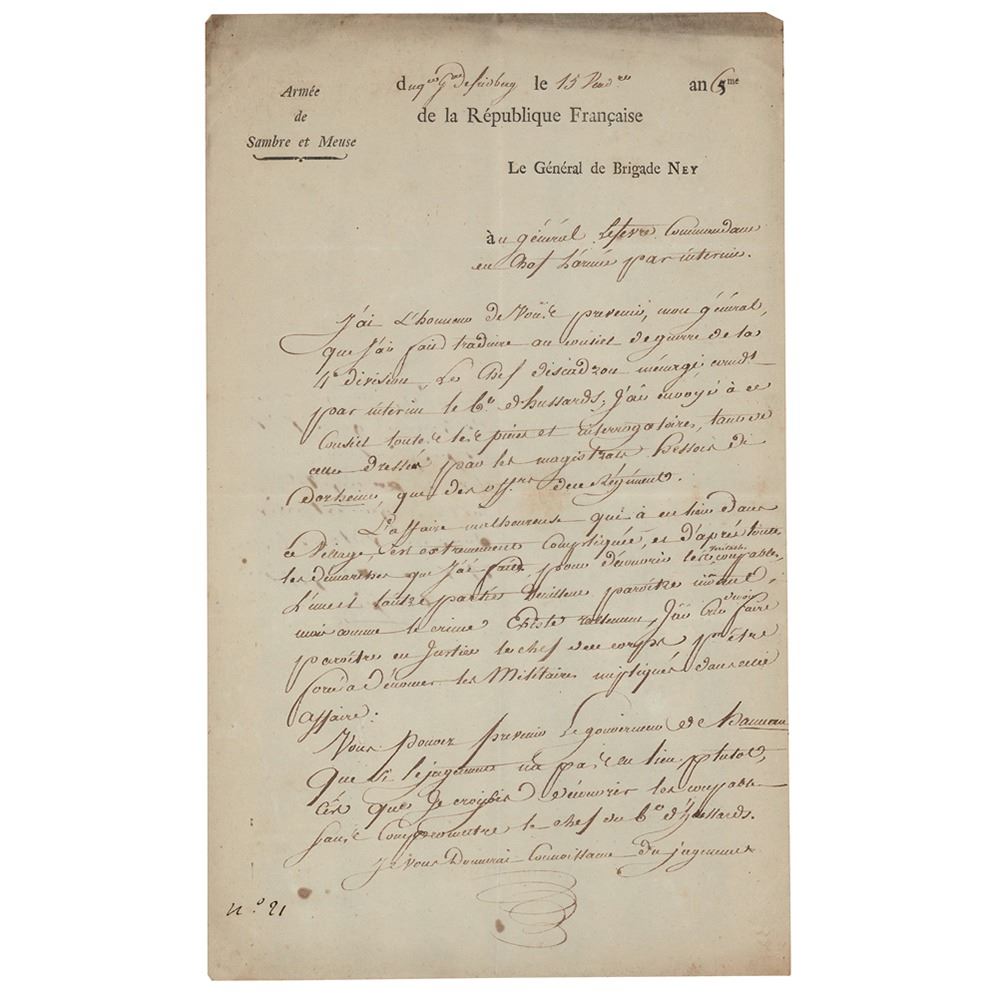 Armée
de
Sambre et Meuse
du qer gal de fridberg le 15 Vendre an 6me
de la République Française
Le Général de Brigade NEY
àu général Lefevre Commandant
en Chef L'armée par interim.
J'ai L'honneur de Vous prevenir, mon général,
que J'ai fait traduire au conseil de guerre de la
4e division Le Chef d'escadron ménagé comdt
par intérim le 6e d'hussards; J'ai envoyé à ce
Conseil toutes les pièces et interrogatoires, tant de
ceux dressés par les magistrats hessois de
Dorheim, que des offrs du Régiment.
L'affaire malheureuse qui à eu lieu dans
ce Village, est extremement Compliquée, et d'après toutes
les demarches que J'ai faites pour découvrir les veritables coupables,
L'une et l'autre partie paroître
mais comme le crime Existe réellement, J'ai Cru devoir faire
paroître en Justice le chef de corps pr être
forcé a dénoncer les Militaires impliqués dans cette
affaire.
Vous Pouvez prevenir Le gouverneur de hannau
que si le jugement n'a pas eu lieu plutot,
C'est que Je croyois découvrir les coupables
sans Compromettre le chef du 6e d'hussards.
Je Vous Donnerai Connoissance du jugement
n.o 21